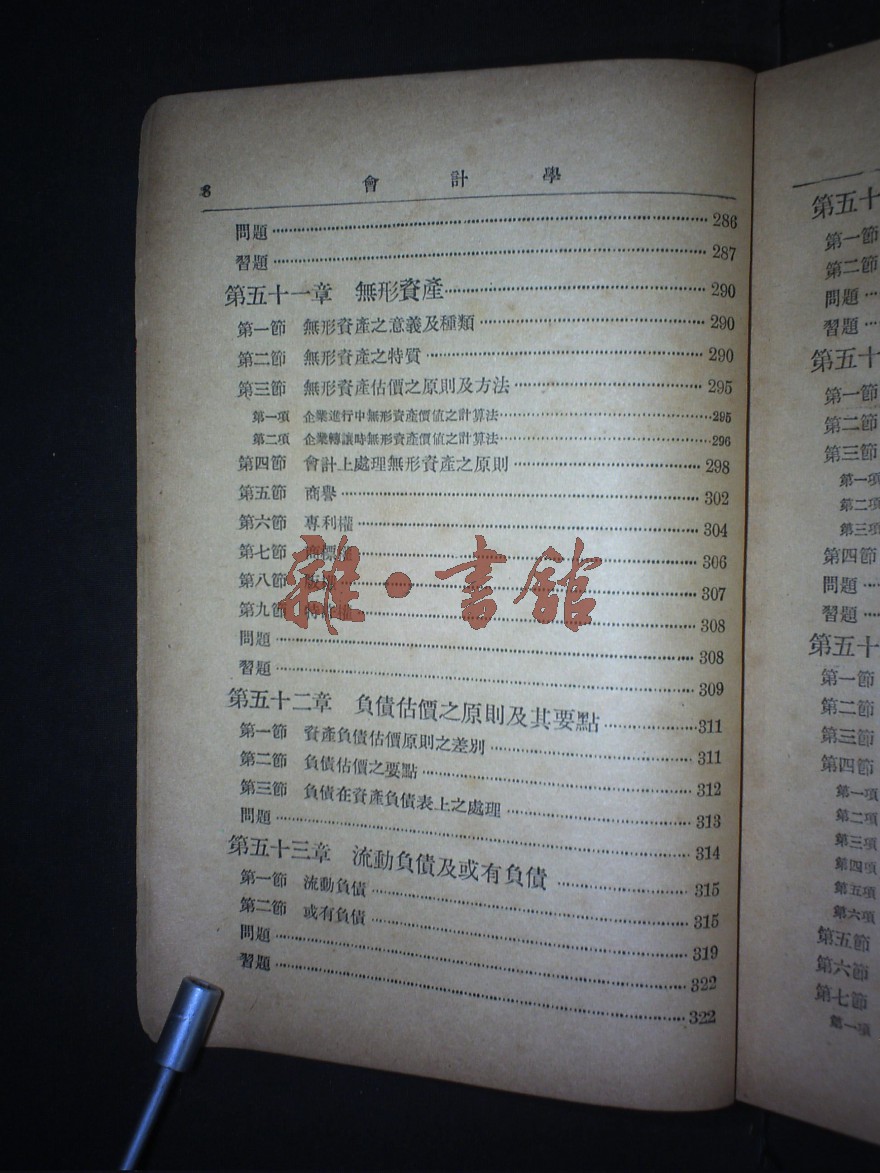 8 會計學
問題 286
習題 287
第五十一章 無形資產 290
第一節 無形資產之意義及種類 290
第二節 無形資產之特質 290
第三節 無形資產估價之原則及方法 295
第一項 企業進行中無形資產價值之計算法 295
第二項 企業轉讓時無形資產價值之計算法 296
第四節 會計上處理無形資產之原則 298
第五節 商譽 302
第六節 專利權 304
第七節 商標權 306
第八節 版權 307
第九節 特許權 308
問題 308
習題 309
第五十二章 負債估價之原則及其要點 311
第一節 資產負債估價原則之差別 311
第二節 負債估價之要點 312
第三節 負債在資產負債表上之處理 313
問題 314
第五十三章 流動負債及或有負債 315
第一節 流動負債 315
第二節 或有負債 319
問題 322
習題 322
雜·書館
第五十
第一節
第二節
問題
習題
第五十
第一節
第二節
第三節
第一項
第二項
第三項
第四節
問題
習題
第五十
第一節
第二節
第三節
第四節
第一項
第二項
第三項
第四項
第五項
第六項
第五節
第六節
第七節
第一項